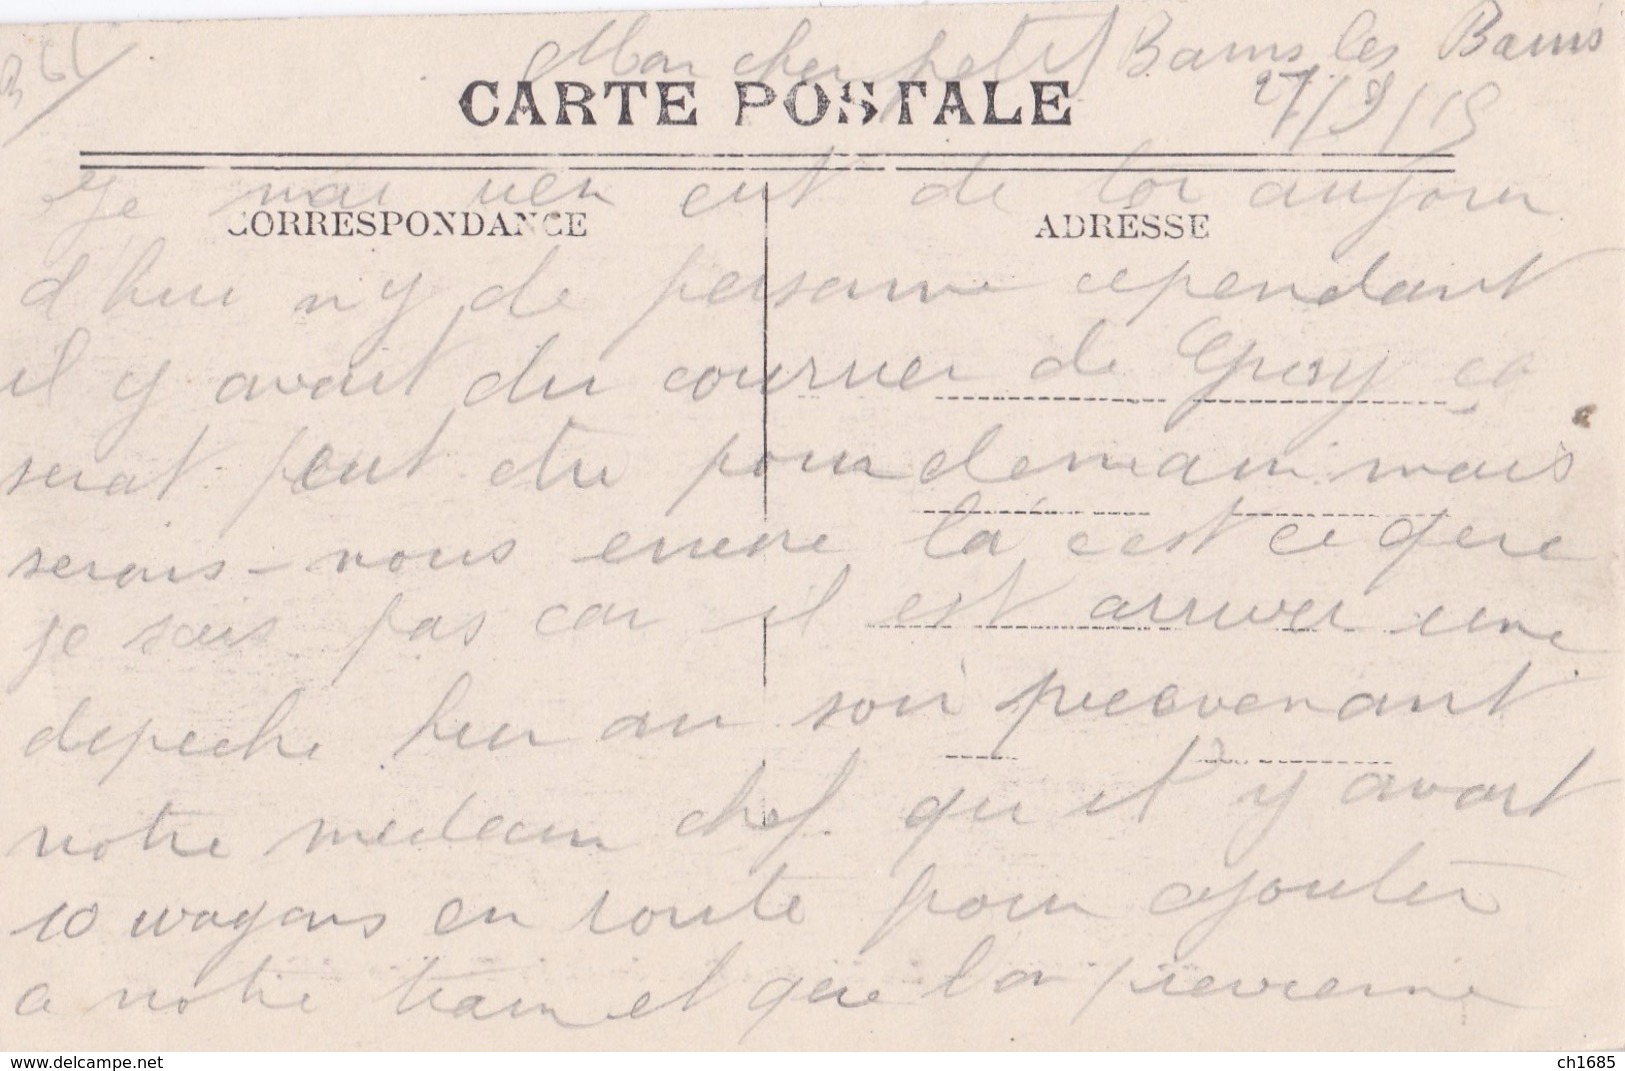 Mon cher petit Bains les Bains
27/9/15
CARTE POSTALE
Je nai rien eut de toi aujour
CORRESPONDANCE
ADRESSE
d'hui n y de personne cependant
il y avait du courrier de ça
serat peut etre pour demain mais
serons-nous encore là c'est ce que
je sais pas car il est arriver une
depeche hier au soir preevenant
notre medecin chef qu il y avait
10 wagons en route pour ajouter
a notre train et que l on previenne
www.delcampe.net
ch1685